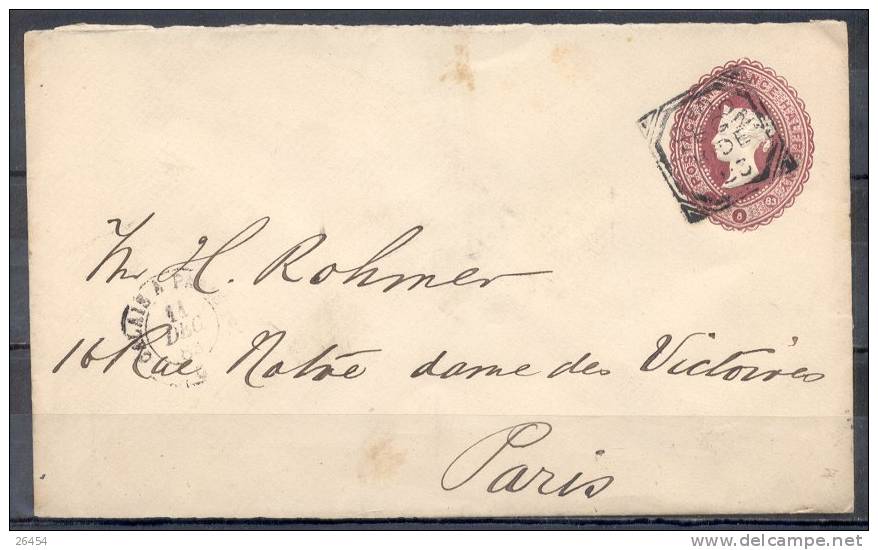 POSTAGE PENCE HALFPENNY
DE
Mr H. Rohmer
CALAIS A PA
11
DEC
16 Rue Notre dame des Victoires
Paris
26454
delcampe.net